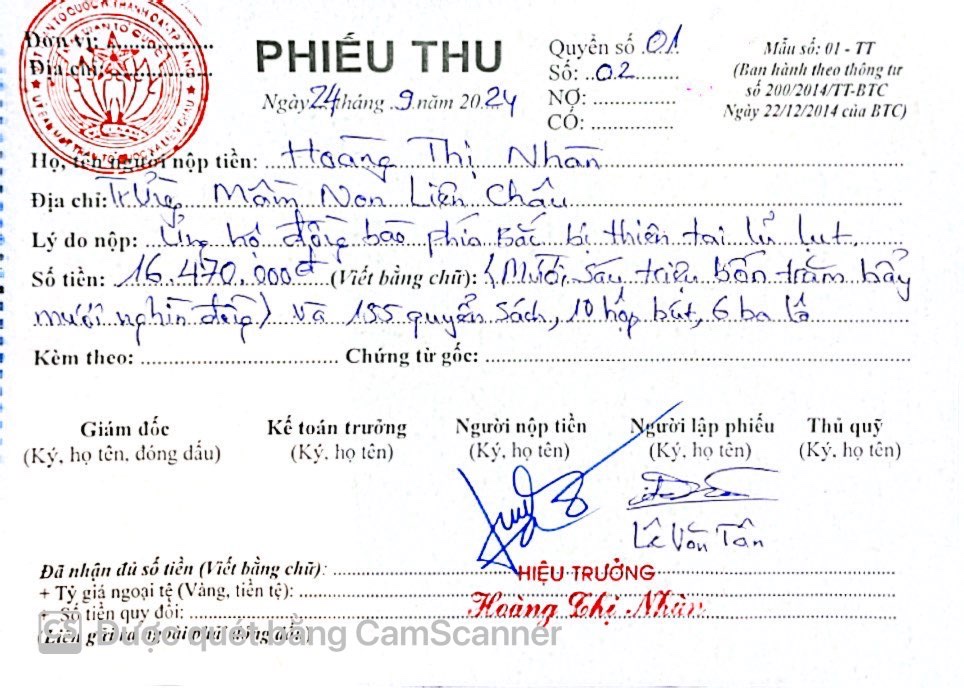 Đơn vị:
Địa chỉ:
PHIẾU THU
Ngày 24 tháng 9 năm 2024
Quyển số 01
Số: 02
NỢ: ..............
CÓ: ..............
Mẫu số: 01 - TT
(Ban hành theo thông tư
số 200/2014/TT-BTC
Ngày 22/12/2014 của BTC)
Họ, tên người nộp tiền: Hoàng Thị Nhàn
Địa chỉ: Trường Mầm Non Liên Châu
Lý do nộp: Ủng hộ đồng bào phía Bắc bị thiên tai lũ lụt.
Số tiền: 16.470.000đ (Viết bằng chữ): (Mười sáu triệu bốn trăm bảy
mươi nghìn đồng) và 155 quyển sách, 10 hộp bút, 6 ba lô
Kèm theo: .................................. Chứng từ gốc: ..................................
Giám đốc Kế toán trưởng Người nộp tiền Người lập phiếu Thủ quỹ
(Ký, họ tên, đóng dấu) (Ký, họ tên) (Ký, họ tên) (Ký, họ tên) (Ký, họ tên)
Lê Văn Tân
Đã nhận đủ số tiền (Viết bằng chữ): ..................................
HIỆU TRƯỞNG
+ Tỷ giá ngoại tệ (Vàng, tiền tệ): ..................................
Hoàng Thị Nhàn
+ Số tiền quy đổi: ..................................
(Liên gửi ra ngoài phải đóng dấu)
CS Được quét bằng CamScanner